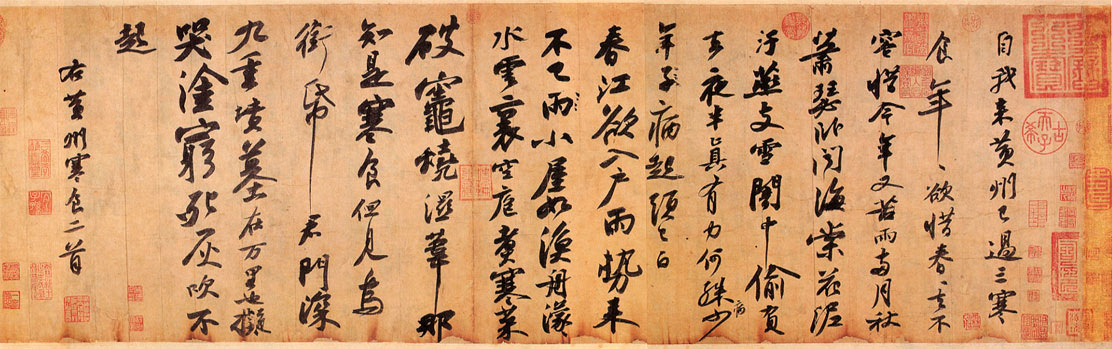 自我来黄州已過三寒
食年〻欲惜春〻去不
容惜今年又苦雨兩月秋
蕭瑟卧聞海棠花泥
汙燕支雪闇中偷負
去夜半真有力何殊病少
年子病起頭已白
春江欲入户雨勢来
不已雨小屋如漁舟濛
水雲裏空庖煮寒菜
破竈燒濕葦那
知是寒食但見烏
銜帋君門深
九重墳墓在万里也擬
哭塗窮死灰吹不
起
右黄州寒食二首
古希天子